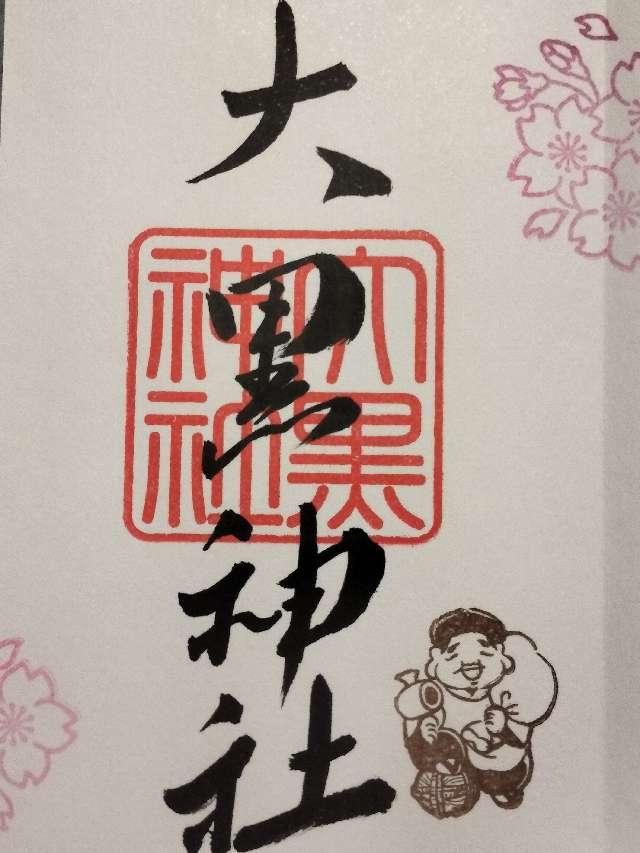 大黒神社
大黒
神社